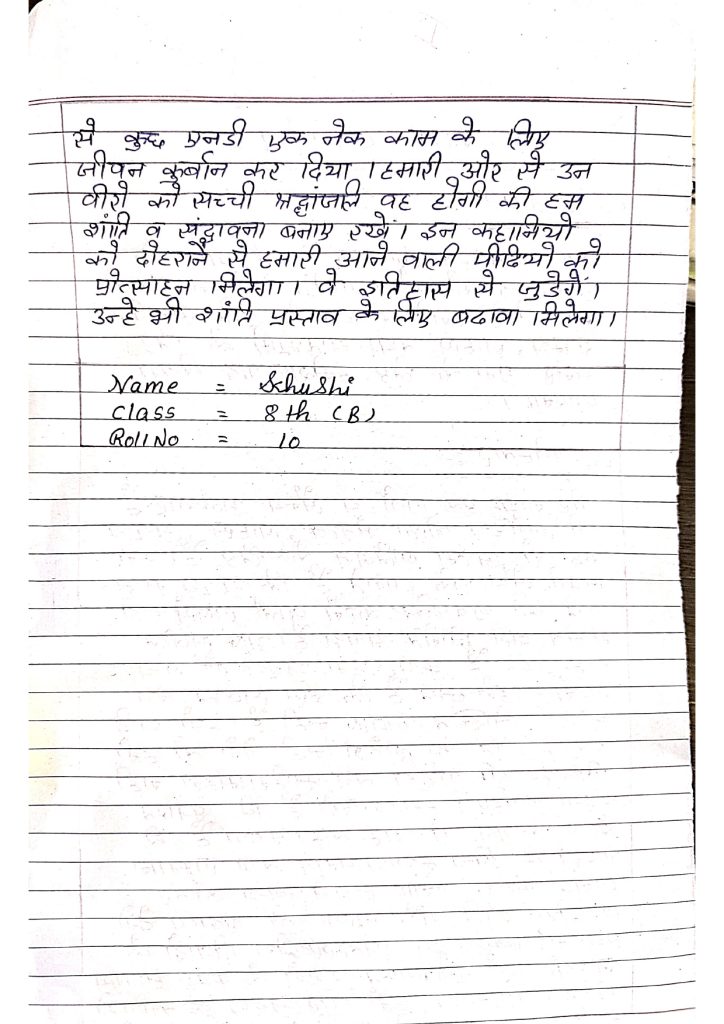 से कुछ एनडी एक नेक काम के लिए
जीवन कुर्बान कर दिया । हमारी ओर से उन
वीरो को सच्ची श्रद्धांजलि वह होगी की हम
शांति व संद्भावना बनाए रखें। इन कहानियो
को दोहराने से हमारी आने वाली पीढियो को
प्रोत्साहन मिलेगा। वे इतिहास से जुडेगें।
उन्हे भी शांति प्रस्ताव के लिए बढावा मिलेगा।
Name =
Class = 8th (B)
Roll No = 10